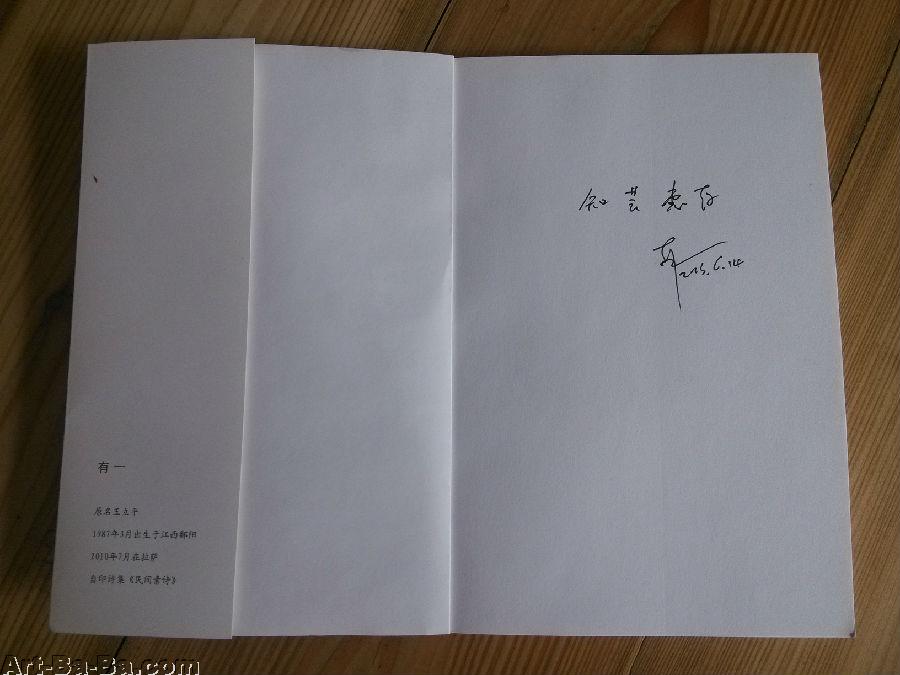 有一
原名王立平
1987年3月出生于江西鄱阳
2010年7月在拉萨
自印诗集《民间素诗》
知芸惠存
2015.6.14
Art-Ba-Ba.com